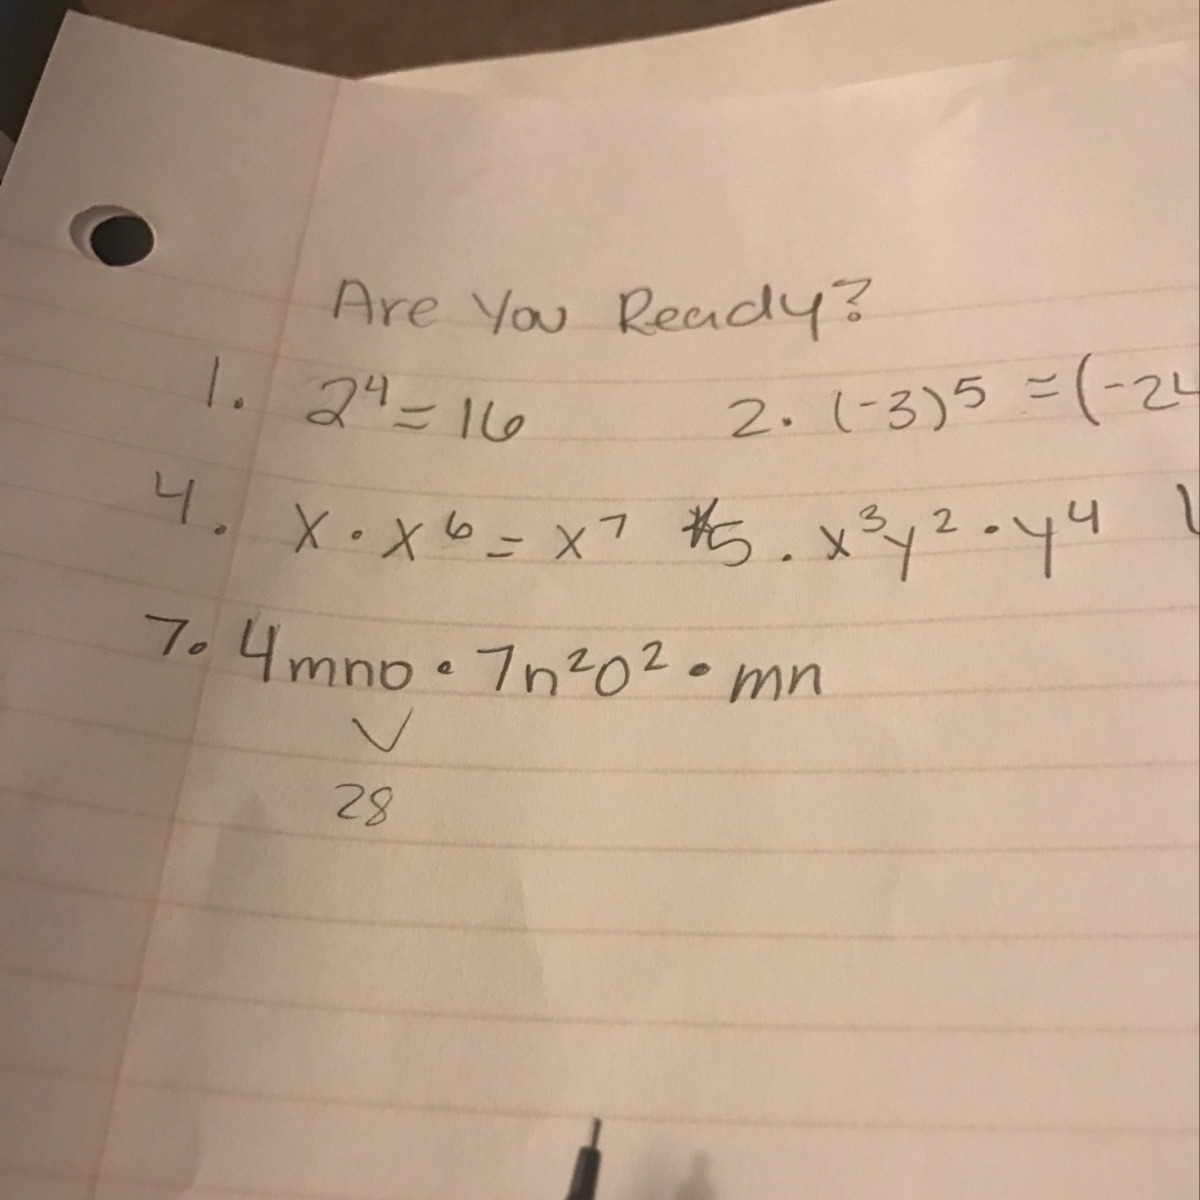 Are You Ready?
1. 2⁴ = 16 2. (-3)⁵ = (-24
4. x · x⁶ = x⁷ 5. x³y² · y⁴
7. 4mno · 7n²o² · mn
28